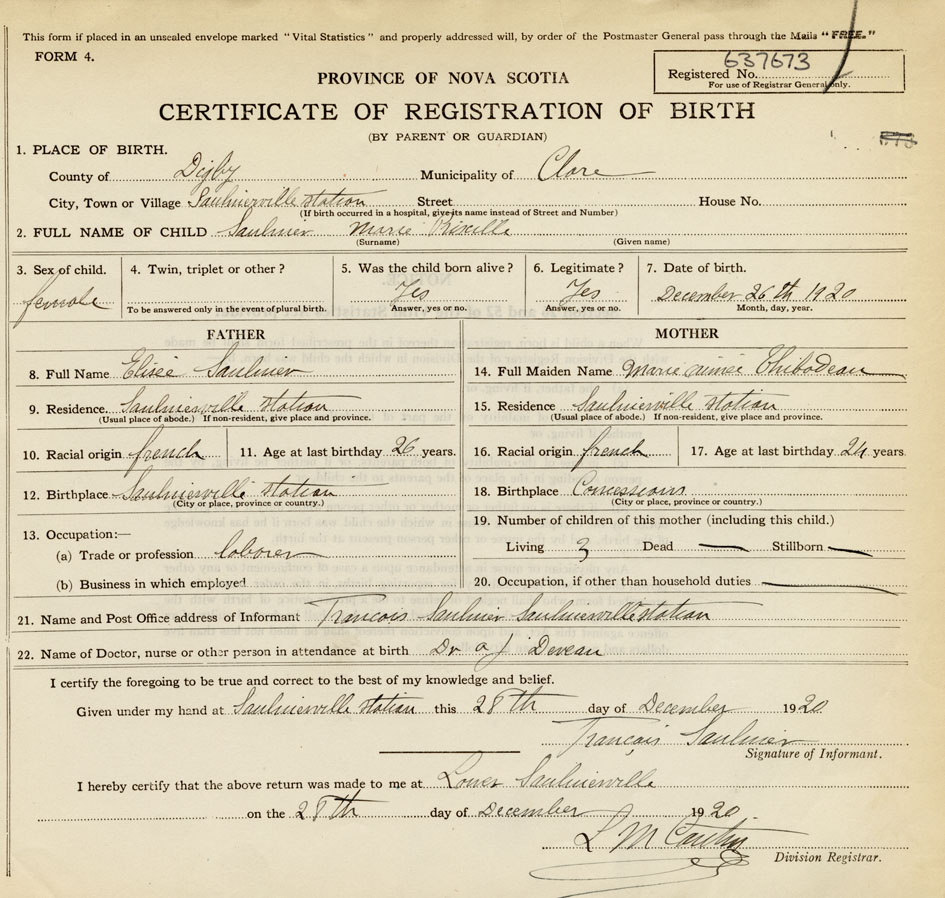 This form if placed in an unsealed envelope marked "Vital Statistics" and properly addressed will, by order of the Postmaster General pass through the Mails "FREE."
FORM 4.
637673
Registered No.
For use of Registrar General only.
PROVINCE OF NOVA SCOTIA
CERTIFICATE OF REGISTRATION OF BIRTH
(BY PARENT OR GUARDIAN)
1. PLACE OF BIRTH.
County of Digby Municipality of Clare
City, Town or Village Saulnierville station Street House No.
(If birth occurred in a hospital, give its name instead of Street and Number)
2. FULL NAME OF CHILD Saulnier Marie Priscille
(Surname) (Given name)
3. Sex of child. 4. Twin, triplet or other? 5. Was the child born alive? 6. Legitimate? 7. Date of birth.
female Yes Yes December 26th 1920
To be answered only in the event of plural birth. Answer, yes or no. Answer, yes or no. Month, day, year.
FATHER MOTHER
8. Full Name Elisée Saulnier 14. Full Maiden Name Marie aimée Thibodeau
9. Residence. Saulnierville station 15. Residence Saulnierville station
(Usual place of abode.) If non-resident, give place and province. (Usual place of abode.) If non-resident, give place and province.
10. Racial origin french 11. Age at last birthday 26 years. 16. Racial origin french 17. Age at last birthday 24 years.
12. Birthplace Saulnierville station 18. Birthplace Concessions
(City or place, province or country.) (City or place, province or country.)
13. Occupation:— 19. Number of children of this mother (including this child.)
(a) Trade or profession laborer Living 3 Dead — Stillborn —
(b) Business in which employed 20. Occupation, if other than household duties —
21. Name and Post Office address of Informant François Saulnier Saulnierville station
22. Name of Doctor, nurse or other person in attendance at birth Dr a J Deveau
I certify the foregoing to be true and correct to the best of my knowledge and belief.
Given under my hand at Saulnierville station this 28th day of December 1920
François Saulnier
Signature of Informant.
I hereby certify that the above return was made to me at Lower Saulnierville
on the 28th day of December 1920
L M
Division Registrar.